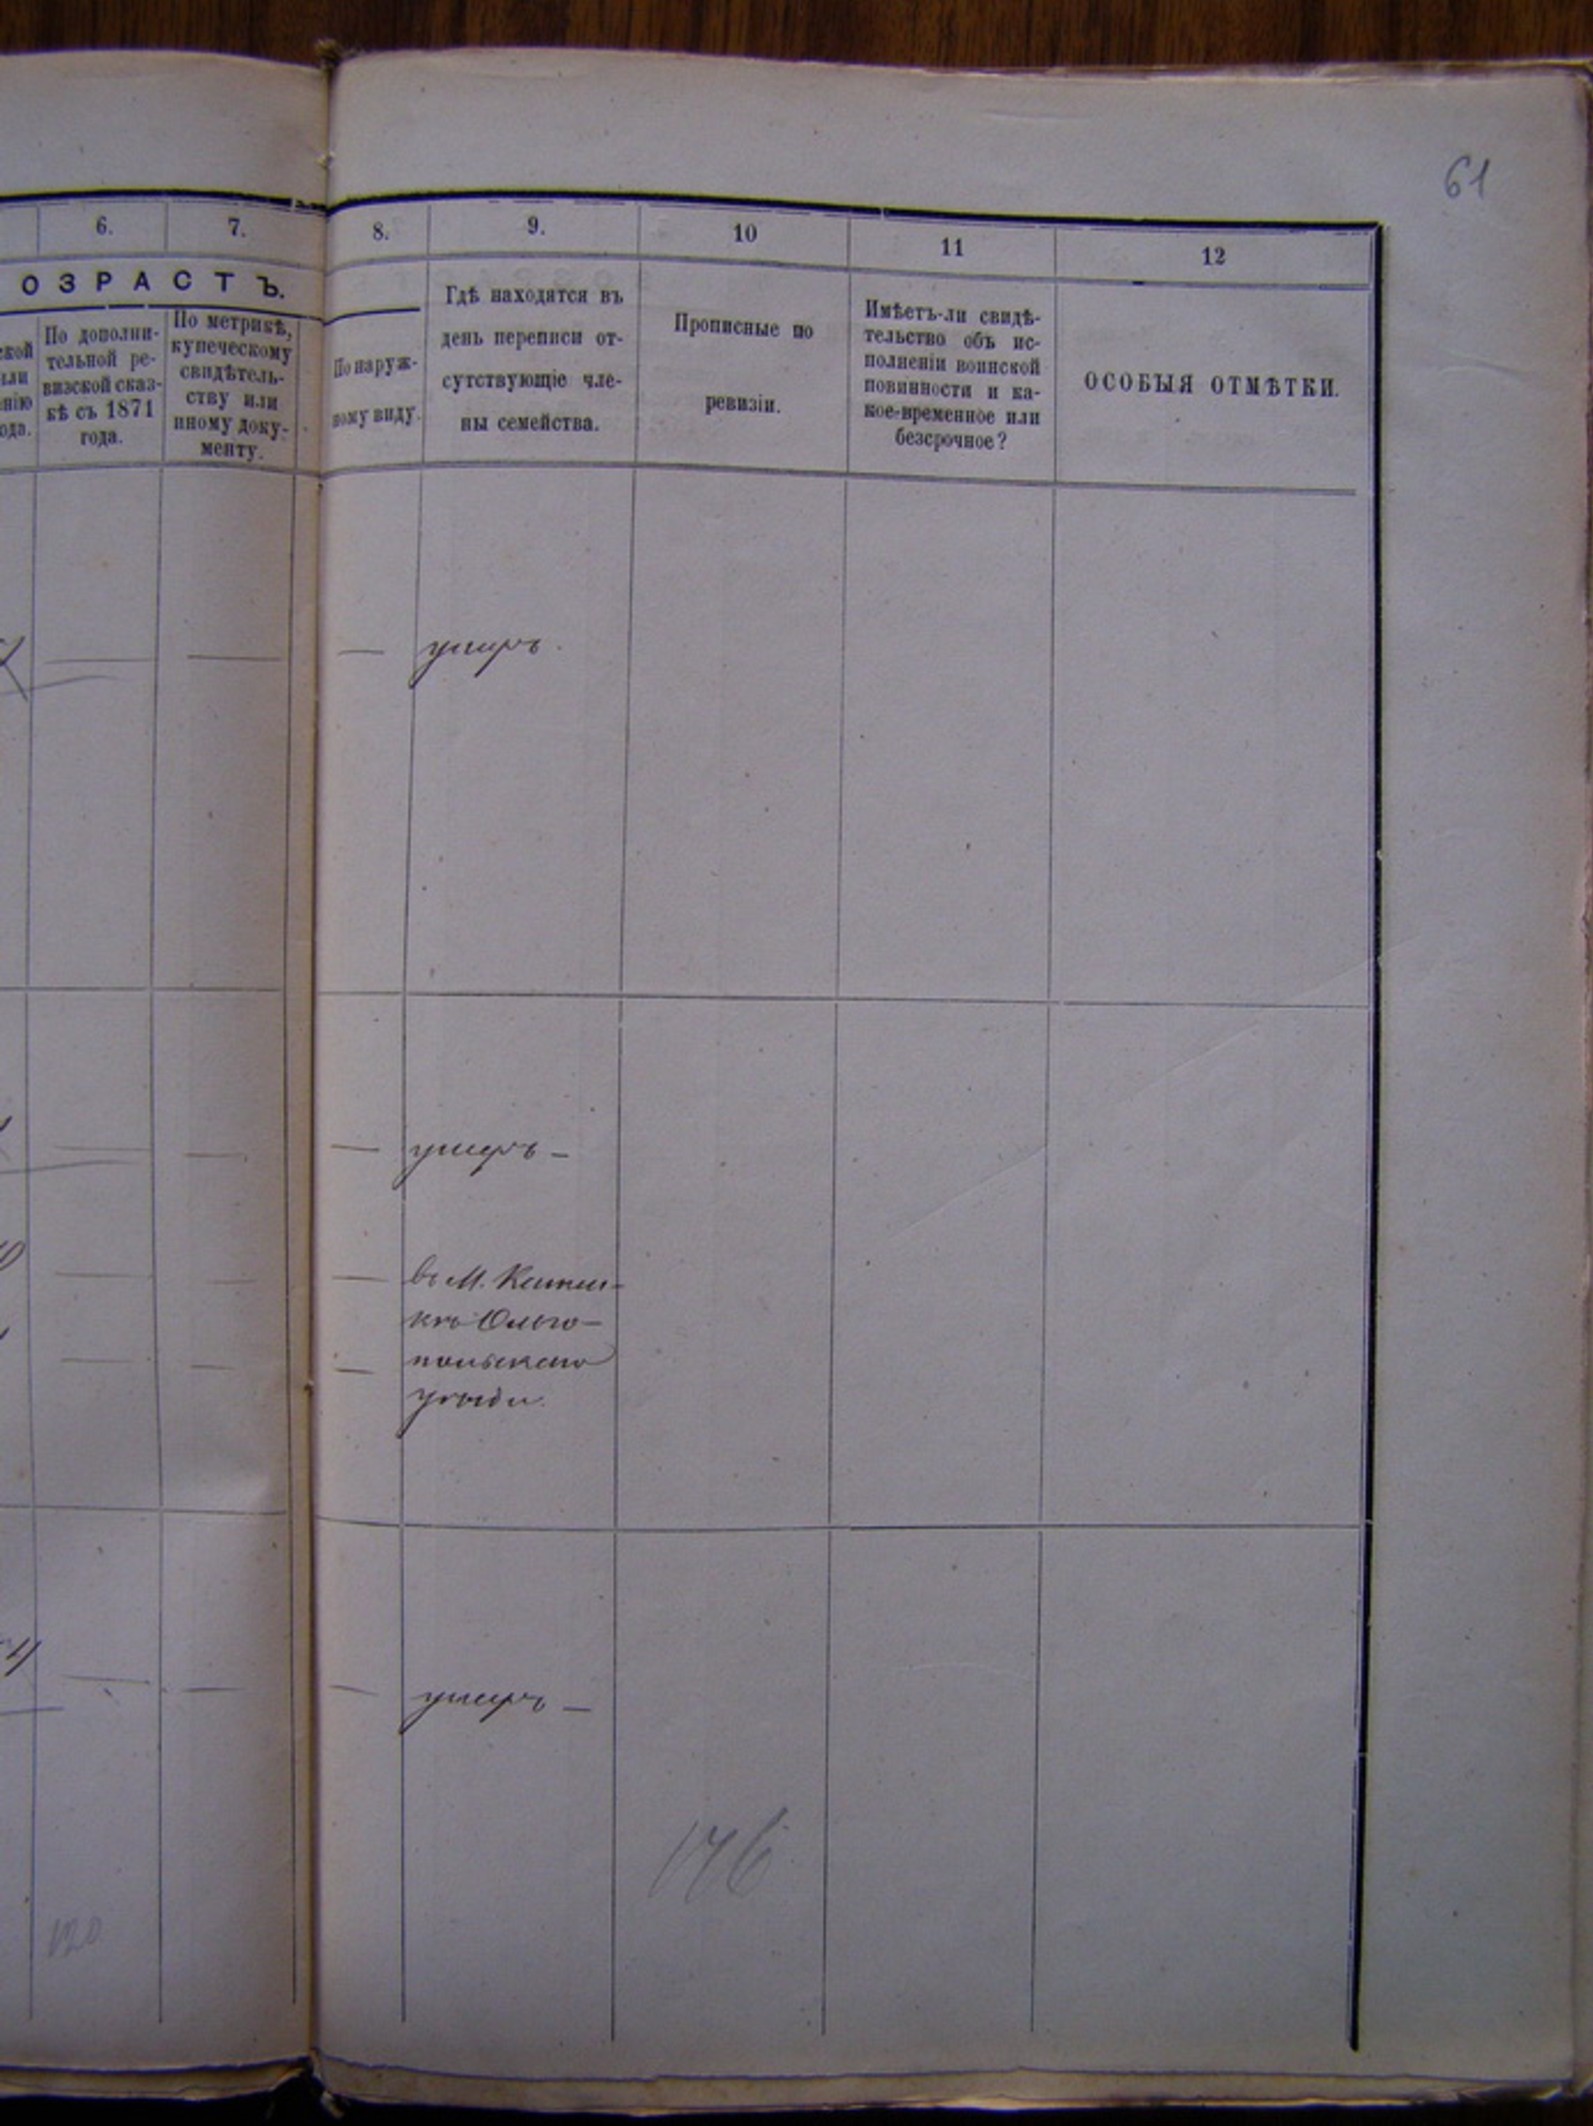 61
6.
7.
8.
9.
10
11
12
ОЗРАСТЪ.
ской
или
нію
ода.
По дополни-
тельной ре-
визской сказ-
кѣ съ 1871
года.
По метрикѣ,
купеческому
свидѣтель-
ству или
иному доку-
менту.
По наруж-
ному виду.
Гдѣ находятся въ
день переписи от-
сутствующіе чле-
ны семейства.
Прописные по
ревизіи.
Имѣетъ-ли свидѣ-
тельство объ ис-
полненіи воинской
повинности и ка-
кое-временное или
безсрочное?
ОСОБЫЯ ОТМѢТКИ.
умеръ.
умеръ –
въ М.
кѣ Ольго-
польскаго
уѣзда.
умеръ –
146
120